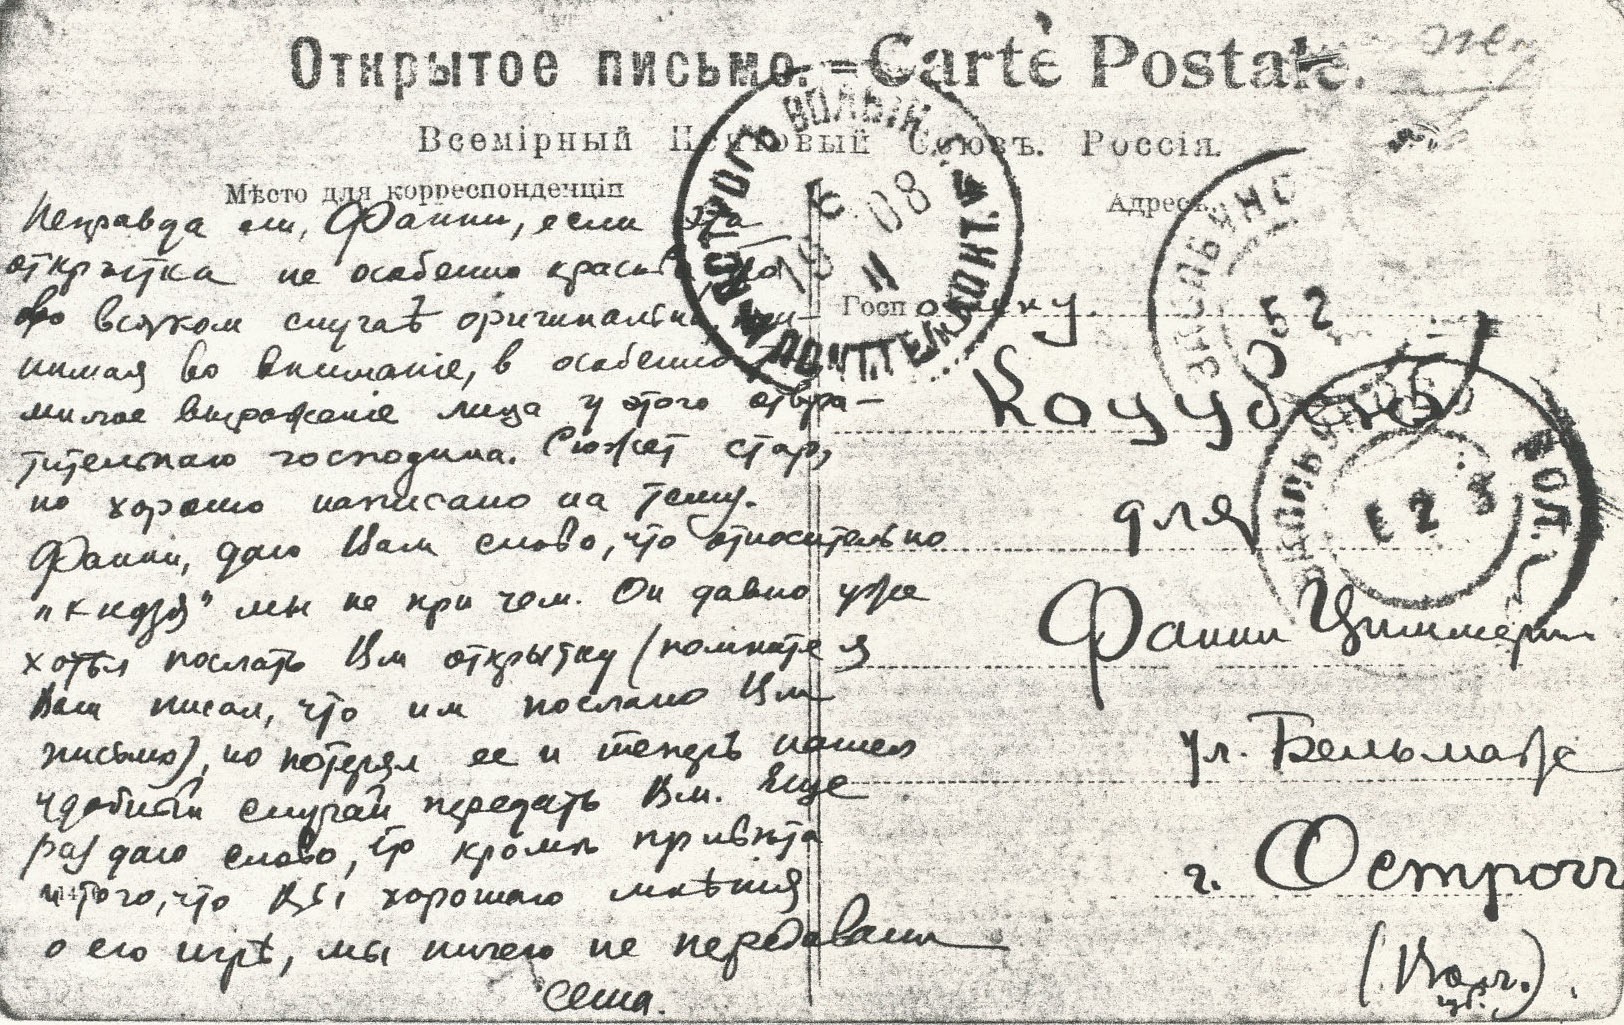 Открытое письмо. = Carte Postale.
Всемірный Почтовый Союзъ. Россія.
Мѣсто для корреспонденціи
Адресъ.
Неправда ли, Фанни, если эта
открытка не особенно красива, но
во всяком случаѣ оригинальна, при-
нимая во вниманіе, в особенно
милое выраженіе лица у этого отвра-
тительнаго господина. Сюжет стар,
но хорошо написано на тему.
Фанни, даю Вам слово, что относительно
"Кндзя" мы не при чем. Он давно уже
хотѣл послать Вм открытку (помните я
Вам писал, что им послано Вм
письмо), но потерял ее и теперь нашел
удобный случай передать Вм. Еще
раз даю слово, что кромѣ привѣта
и того, что Вы хорошаго мнѣнія
о его игрѣ, мы ничего не передавали
Сеша.
Господину
Коцубею
для
Фанни Циммерман
ул. Бельмаже
г. Острогъ
(Вол.)
губ.
ОСТРОГЪ ВОЛЫН.
ПОЧТ.ТЕЛ.КОНТ.
6 11 08
19
52
ВОЛ.